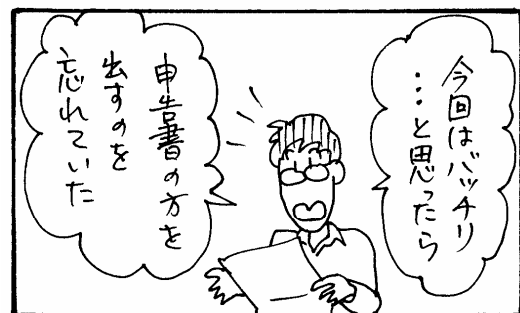 今回はバッチリ
…と思ったら
申告書の方を
出すのを
忘れていた